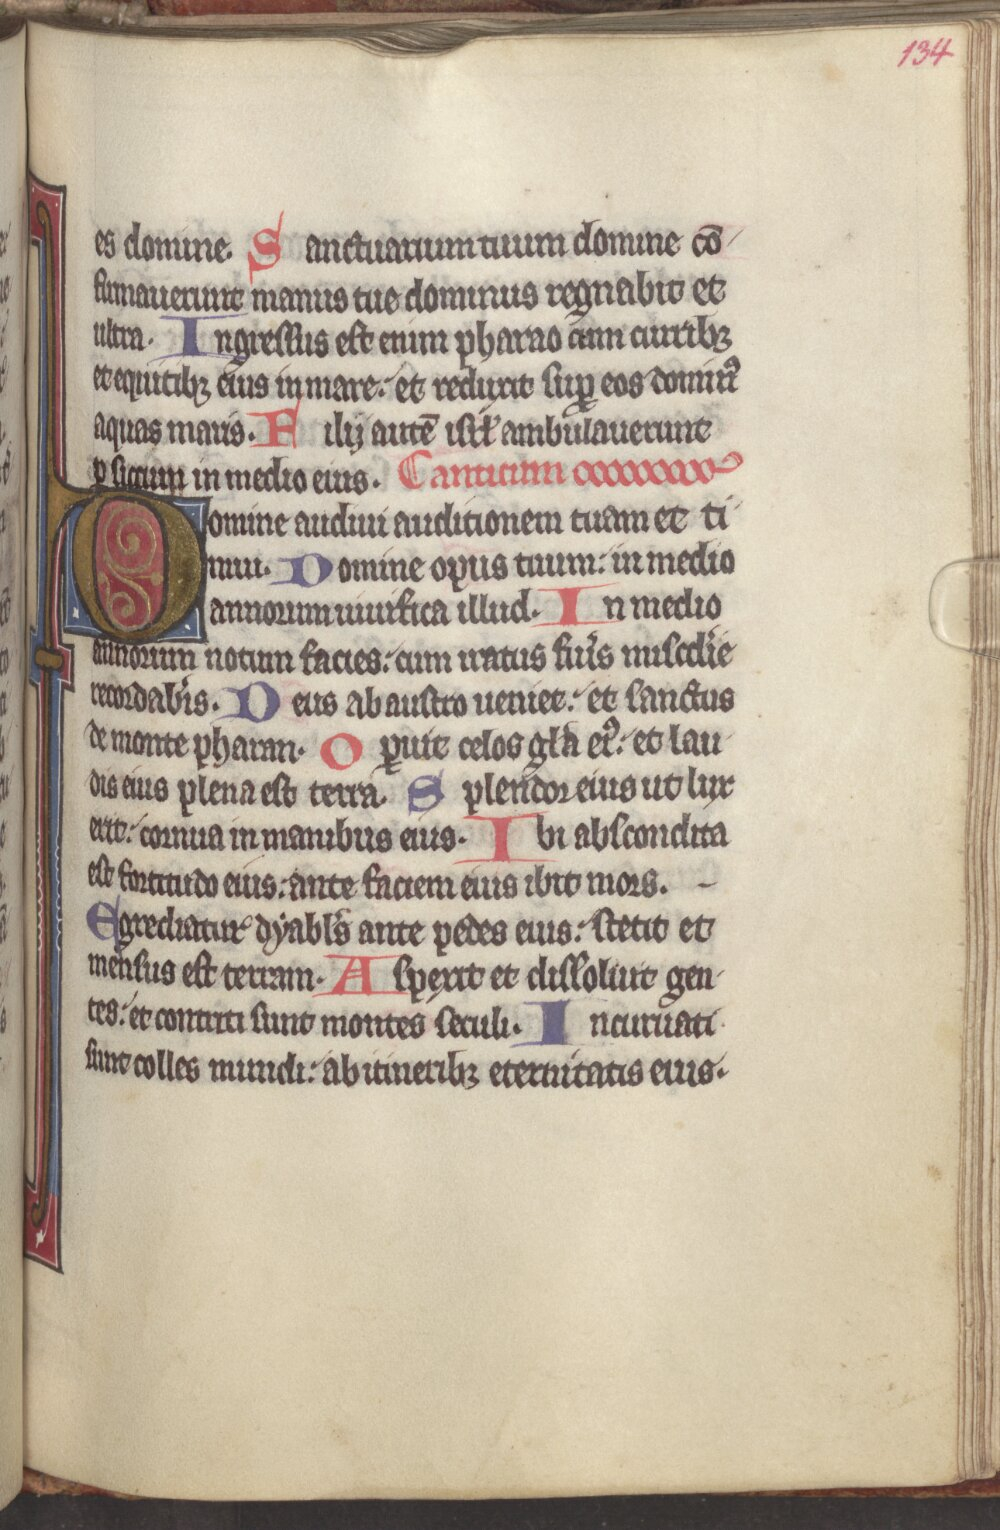 134
es domine. Sanctuarium tuum domine cō
firmauerunt manus tue dominus regnabit et
ultra. Ingressus est enim pharao cum curribꝫ
et equitibꝫ eius in mare: et reduxit suꝑ eos domin᷒
aquas maris. Filij autē isrł ambulauerunt
ꝑ siccum in medio eius. Canticum
Domine audiui auditionem tuam et ti
mui. Domine opus tuum: in medio
annorum uiuifica illud. In medio
annorum notum facies: cum iratus fuͥs miscd̕ie
recordab̕is. Deus ab austro ueniet: et sanctus
de monte pharan. Oꝑuit celos gl̄a ei᷒: et lau
dis eius plena est terra. Splendor eius ut lux
erit: cornua in manibus eius. Ibi abscondita
est fortitudo eius: ante faciem eius ibit mors.
Egrediatur dyabl̕s ante pedes eius: stetit et
mensus est terram. Aspexit et dissoluit gen
tes: et contriti sunt montes seculi. Incuruati
sunt colles mundi: ab itineribꝫ eternitatis eius.